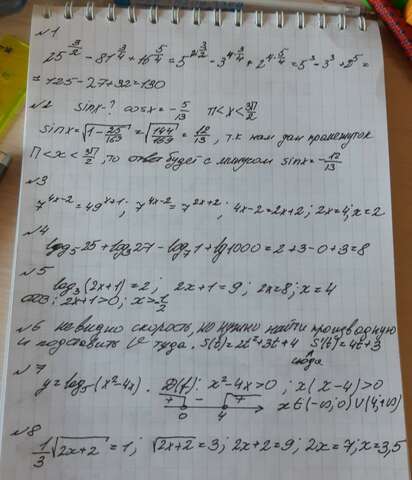 №1
25^(3/2) - 81^(3/4) + 16^(5/4) = 5^(2·3/2) - 3^(4·3/4) + 2^(4·5/4) = 5^3 - 3^3 + 2^5 =
= 125 - 27 + 32 = 130
№2 sinx-? cosx = -5/13 П < x < 3П/2
sinx = √(1 - 25/169) = √(144/169) = 12/13, т.к нам дан промежуток
П < x < 3П/2, то ответ будет с минусом sinx = -12/13
№3
7^(4x-2) = 49^(x+1); 7^(4x-2) = 7^(2x+2); 4x-2 = 2x+2; 2x = 4; x = 2
№4
log₅25 + log₃27 - log₇1 + lg1000 = 2+3-0+3 = 8
№5
log₃(2x+1) = 2; 2x+1 = 9; 2x = 8; x = 4
ОДЗ: 2x+1 > 0; x > -1/2
№6 не видно скорость, но нужно найти производную
и подставить V туда. S(t) = 2t²+3t+4 S'(t) = 4t+3
сюда
№7
y = log₅(x²-4x). D(f): x²-4x > 0; x(x-4) > 0
+ - +
0 4 x∈(-∞;0)∪(4;+∞)
№8
1/3 √(2x+2) = 1; √(2x+2) = 3; 2x+2 = 9; 2x = 7; x = 3,5